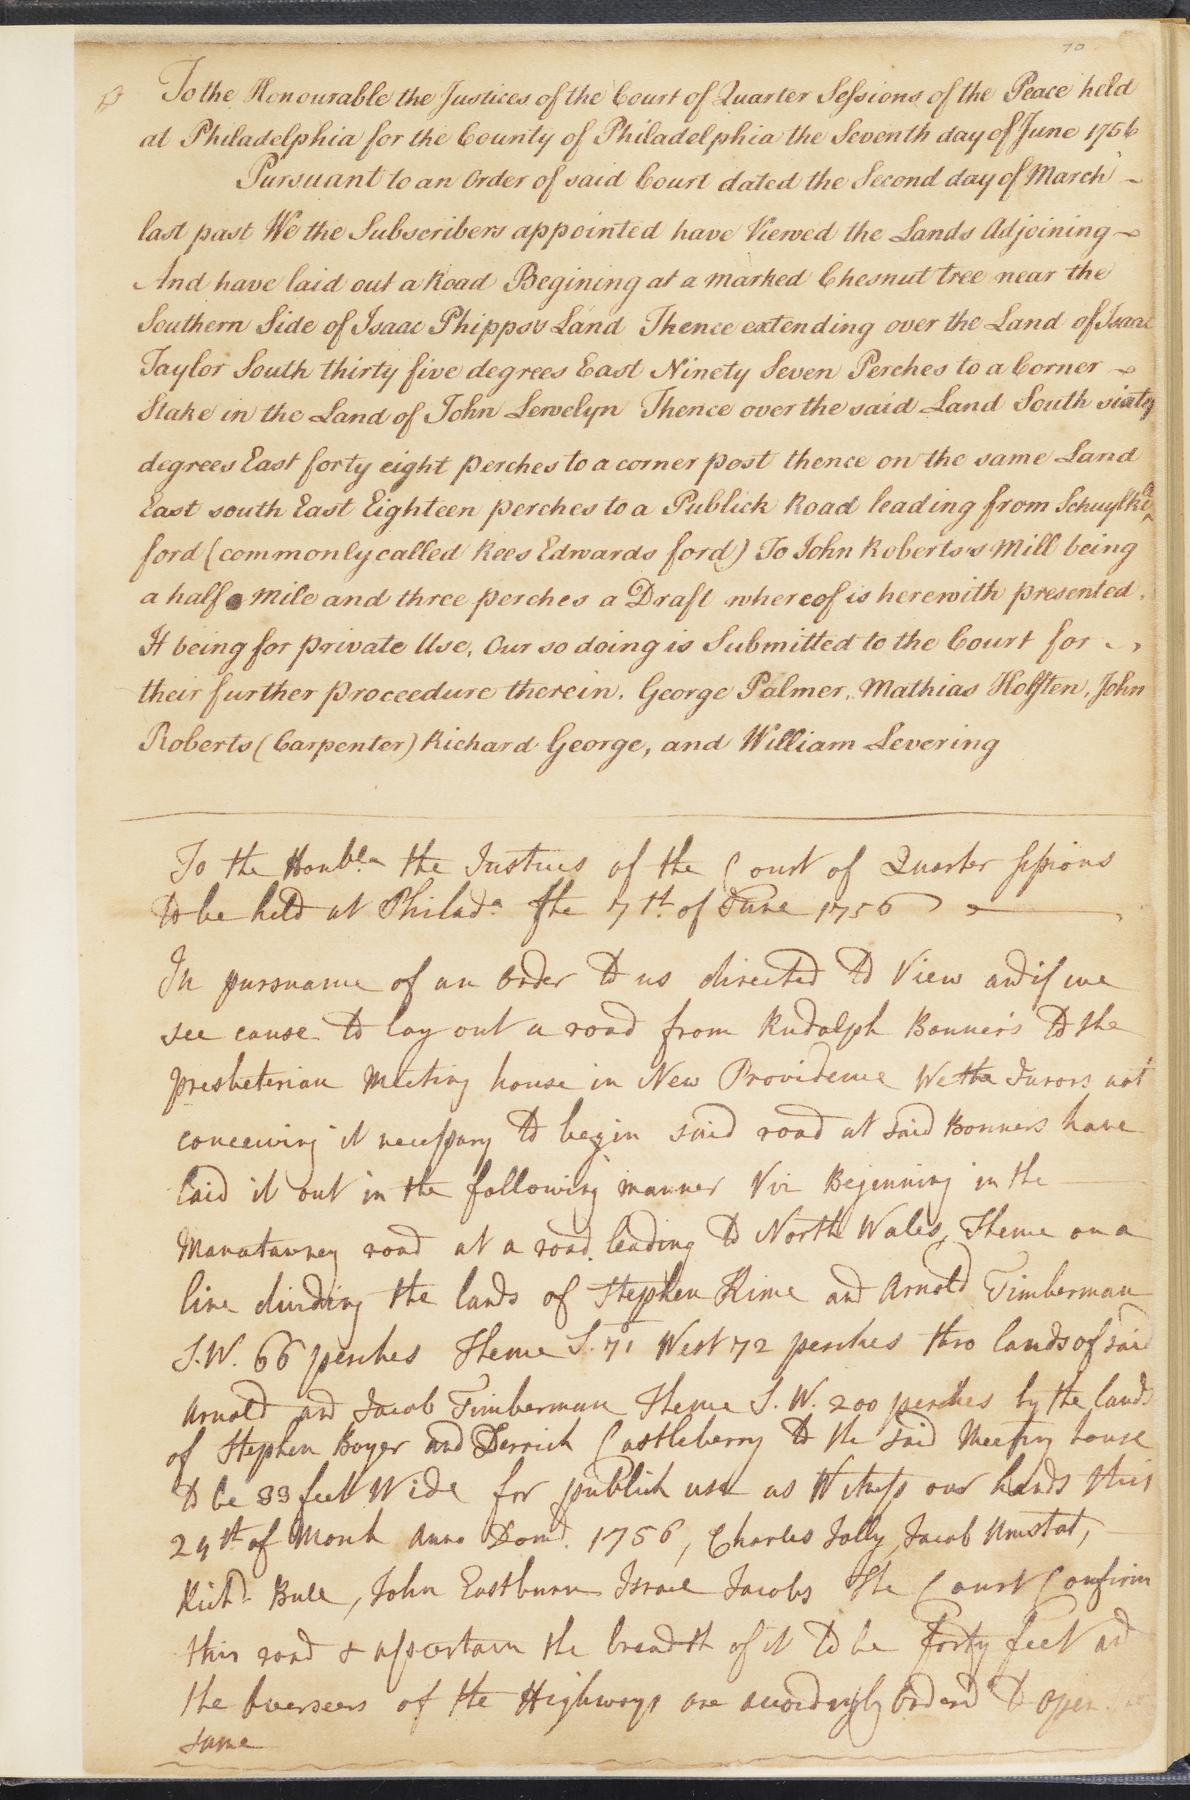 70
To the Honourable the Justices of the Court of Quarter Sessions of the Peace held
at Philadelphia for the County of Philadelphia the Seventh day of June 1756
Pursuant to an Order of said Court dated the Second day of March
last past We the Subscribers appointed have Viewed the Lands Adjoining
And have laid out a Road Begining at a marked Chesnut tree near the
Southern Side of Isaac Phipps's Land Thence extending over the Land of Isaac
Taylor South thirty five degrees East Ninety Seven Perches to a Corner
Stake in the Land of John Lewelyn Thence over the said Land South sixty
degrees East forty eight perches to a corner post thence on the same Land
East south East Eighteen perches to a Publick Road leading from Schuylkill
ford (commonly called Rees Edwards ford) To John Roberts's Mill being
a half mile and three perches a Draft whereof is herewith presented.
It being for private Use, Our so doing is Submitted to the Court for
their further proceedure therein. George Palmer, Mathias Holsten, John
Roberts (Carpenter) Richard George, and William Levering
To the Honble. the Justices of the Court of Quarter Sessions
to be held at Philada. the 7th. of June 1756
In pursuance of an Order to us directed to View and if we
see cause to lay out a road from Rudolph Bonner's to the
presbeterian meeting house in New Providence We the Jurors not
conceiving it necessary to begin said road at said Bonners have
laid it out in the following manner Viz Beginning in the
Manatawney road at a road leading to North Wales, Thence on a
line dividing the lands of Stephen Rime and Arnold Timberman
S.W. 66 perches Thence S. 71 West 72 perches thro lands of said
Arnold and Jacob Timberman Thence S. W. 200 perches by the lands
of Stephen Boyer and Derrick Castleberry to the said Meeting house
to be 33 feet Wide for publick use as Witness our hands this
29th of March Anno Domi. 1756, Charles Jolly, Jacob Umstat,
Richd. Bull, John Eastburn Israel Jacobs The Court Confirm
this road & assertain the breadth of it to be Forty feet and
the Overseers of the Highways are accordingly Ordered to open
same